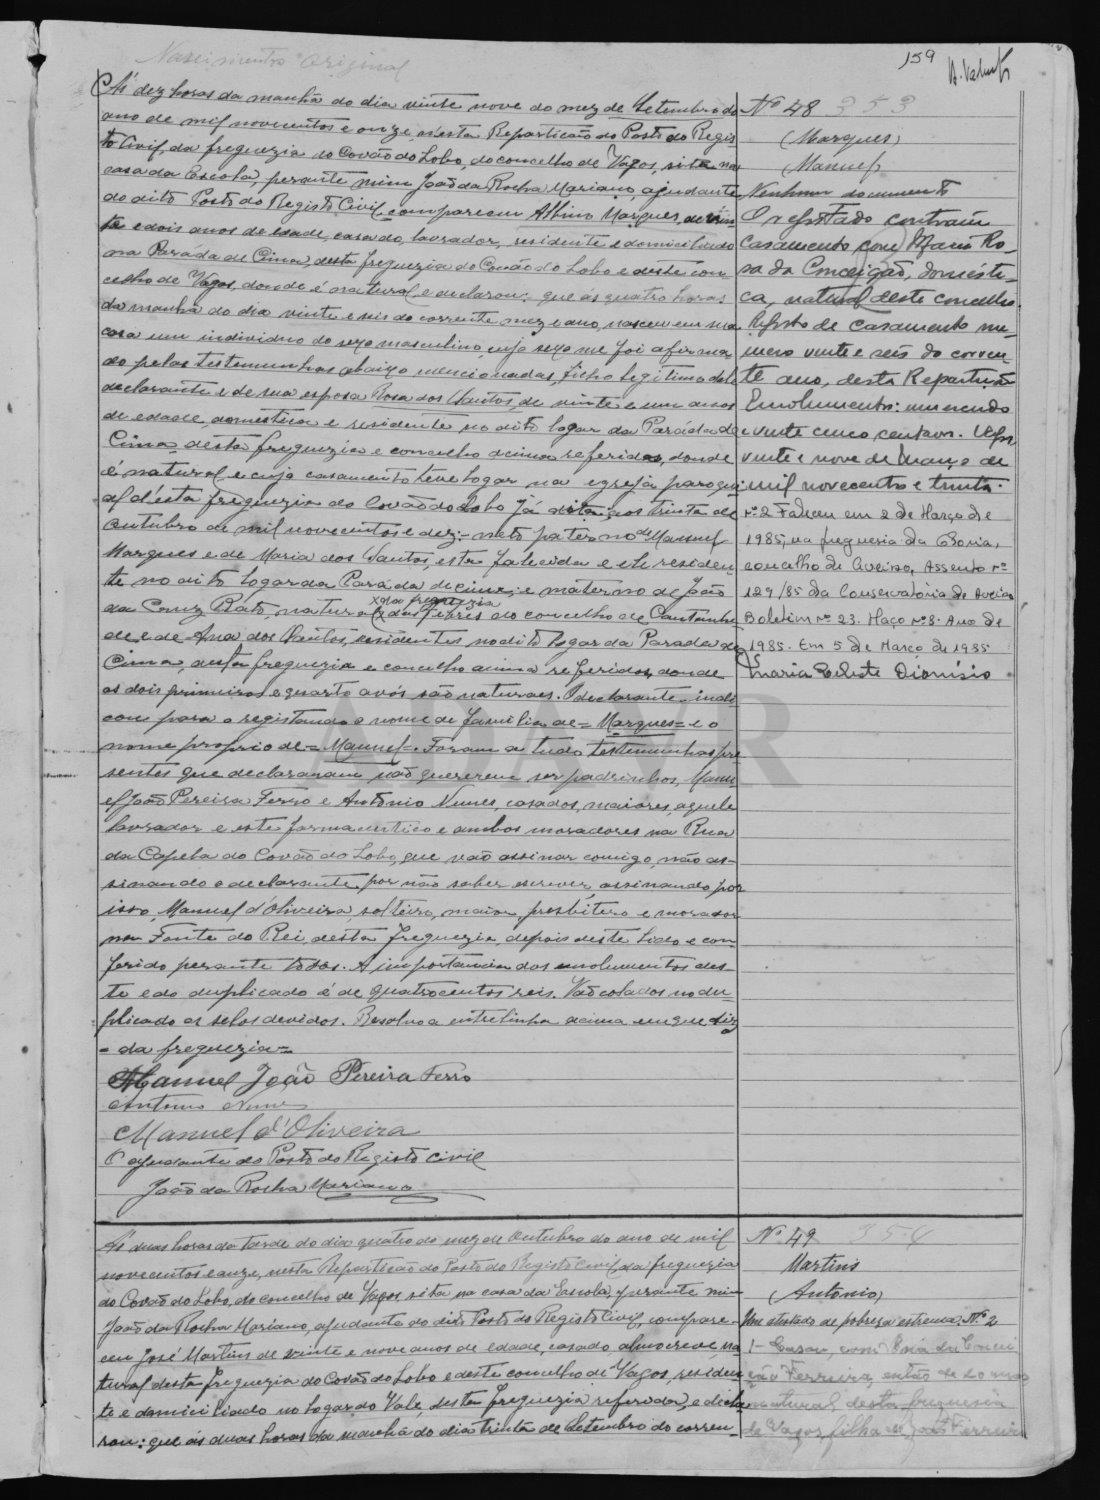 Nascimento Original
159
Ás dez horas da manhã do dia vinte nove do mez de Setembro do
ano de mil novecentos e onze, nesta Repartição do Posto do Regis-
to Civil, da freguezia do Covão do Lobo, do concelho de Vagos, sita na
casa da Escola, perante mim João da Rocha Mariano, ajudante
do dito Posto do Registo Civil compareceu Albino Marques, de trin-
ta e dois anos de edade, casado, lavrador, residente e domiciliado
na Paráda de Cima, desta freguezia do Covão do Lobo e deste con-
celho de Vagos, donde é natural e declarou: que ás quatro horas
da manhã do dia vinte e seis do corrente mez e ano, nasceu em sua
casa um individuo do sexo masculino, cujo sexo me foi afirma-
do pelas testemunhas abaixo mencionadas, filho legitimo dele
declarante e de sua esposa Rosa dos Santos, de vinte e um anos
de edade, domestica e residente no dito logar da Paráda de
Cima, desta freguezia e concelho acima referidos, donde
é natural e cujo casamento teve logar na egreja paroqui-
al d'esta freguezia do Covão do Lobo já dita, aos trinta de
Outubro de mil novecentos e dez; neto paterno de Manuel
Marques e de Maria dos Santos, esta falecida e ele residen-
te no dito logar da Paráda de Cima, e materno de João
da Cruz Rato, natural das Febres do concelho de Cantanhe-
da freguezia
de, e de Ana dos Santos, residentes no dito logar da Parada de
Cima, desta freguezia e concelho acima referidos, donde
os dois primeiros e quarto avós são naturaes. O declarante indi-
cou para o registando o nome de familia de = Marques = e o
nome proprio de = Manuel =. Foram a tudo testemunhas pre-
sentes que declararam não quererem ser padrinhos, Manu-
el João Pereira Ferro e António Nunes, casados, maiores, aquele
lavrador e este farmaceutico e ambos moradores na Rua
da Capela do Covão do Lobo, que vão assinar comigo, não as-
sinando o declarante por não saber escrever, assinando por
isso, Manuel d'Oliveira solteiro, maior, presbitero e morador
na Fonte do Rei, desta freguezia, depois deste lido e con-
ferido perante todos. A importancia dos emolumentos des-
te e do duplicado é de quatrocentos reis. Vão colados no du-
plicado os selos devidos. Resalvo a entrelinha acima em que diz
= da freguezia =
Manuel João Pereira Ferro
Antonio Nunes
Manuel d'Oliveira
O ajudante do Posto do Registo Civil
João da Rocha Mariano
Nº 48 353
(Marques)
(Manuel)
Nenhum documento
O registado contraiu
casamento com Maria Ro-
sa da Conceição, domésti-
ca, natural deste concelho.
Registo de casamento nu-
mero vinte e seis do corren-
te ano, desta Repartição
Emolumentos: um escudo
e vinte cinco centavos.
vinte e nove de Março de
mil novecentos e trinta.
Nº 2 Faleceu em 2 de Março de
1985, na freguesia da Glória,
concelho de Aveiro, Assento nº
129/85 da Conservatória de Aveiro
Boletim nº 23. Maço nº 3. Ano de
1985. Em 5 de Março de 1985
Maria Celeste Dionísio
ADAVR
Ás duas horas da tarde do dia quatro do mez de Outubro do ano de mil
novecentos e onze, nesta Repartição do Posto do Registo Civil, da freguezia
do Covão do Lobo, do concelho de Vagos, sita na casa da Escola, perante mim
João da Rocha Mariano, ajudante do dito Posto do Registo Civil, compare-
ceu José Martins de vinte e nove anos de edade, casado, almocreve, na-
tural desta freguezia do Covão do Lobo e deste concelho de Vagos, residen-
te e domiciliado no logar do Vale, desta freguezia referida, e decla-
rou: que ás duas horas da manhã do dia trinta de Setembro do corren-
Nº 49 354
Martins
(António)
Um atestado de pobreza extrema. Nº 2
1- Casou com Maria da Concei-
ção Ferreira, então de
natural desta freguesia
de Vagos, filha de João Ferreira